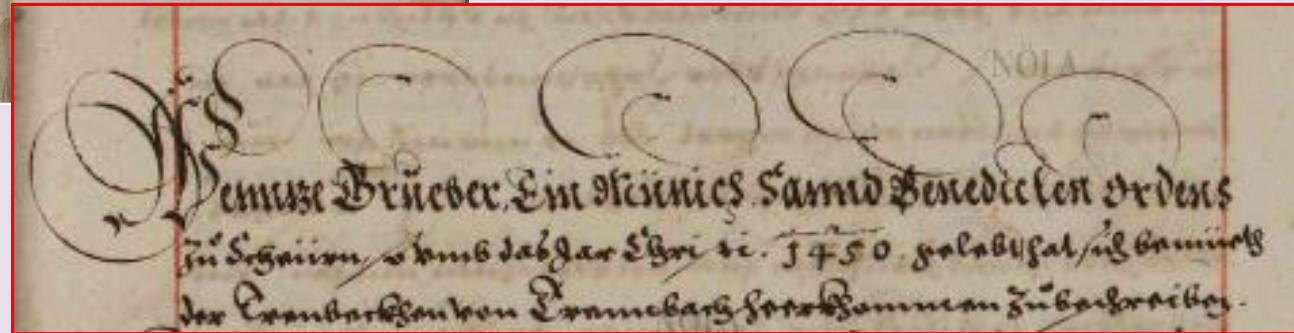 NOLA
Wenntze Grueber, Ein Münich Sannd Benedicten Ordens
zu Scheiirn, so vmb das Jar Christi. 1450. gelebt hat, sich bemüeth
der Trenbeckhen von Trennbach heerkhommen zubeschreiben.